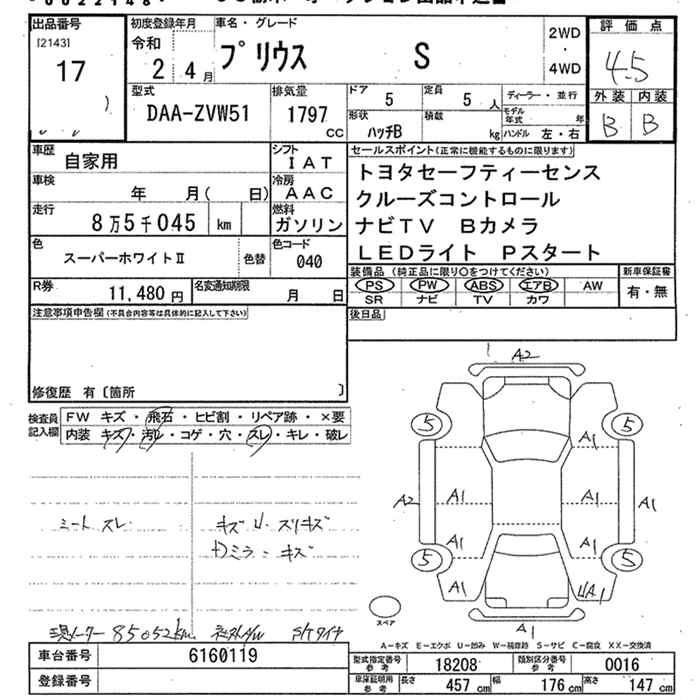 出品番号
[2143]
17
初度登録年月
令和
2 4 月
車名・グレード
プリウス S
2WD
4WD
評価点
4.5
外装 内装
B B
型式
DAA-ZVW51
排気量
1797
CC
ドア 5
定員 5 人
ディーラー・並行
形状 ハッチB
積載 kg
モデル年式 年
ハンドル 左・右
車歴 自家用
シフト IAT
車検 年 月( 日)
冷房 AAC
走行 8万5千045 km
燃料 ガソリン
色 スーパーホワイトⅡ
色替
色コード 040
R券 11,480 円
名変通知期限 月 日
セールスポイント(正常に機能するものに限ります)
トヨタセーフティーセンス
クルーズコントロール
ナビTV Bカメラ
LEDライト Pスタート
装備品 (純正品に限り○をつけてください)
PS PW ABS エアB AW
SR ナビ TV カワ
新車保証書
有・無
後日品
注意事項申告欄(不具合内容等は具体的に記入して下さい)
修復歴 有〔箇所 〕
検査員記入欄
FW キズ・飛石・ヒビ割・リペア跡・×要
内装 キズ・汚レ・コゲ・穴・スレ・キレ・破レ
シート スレ
キズ U スリキズ
Dミラー キズ
現メーター 85052km 社外AW
A2
5 5
A1
A2 A1 A1 A1
A1 A1
5 5
A1 UA1
A1
スペア
A-キズ E-エクボ U-凹み W-補修跡 S-サビ C-腐食 XX-交換済
車台番号 6160119
登録番号
型式指定番号 参考 18208
類別区分番号 参考 0016
車庫証明用 参考 長さ 457 cm 幅 176 cm 高さ 147 cm